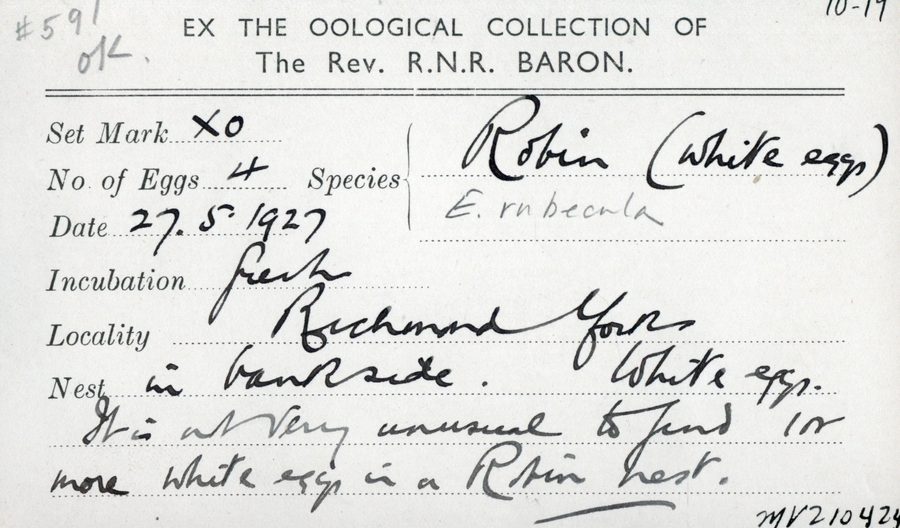 #591 10-19
OK.
EX THE OOLOGICAL COLLECTION OF
The Rev. R.N.R. BARON.
Set Mark XO
Robin (white eggs)
No. of Eggs 4 Species
E. rubecula
Date 27.5.1927
Incubation fresh
Locality Richmond Yorks
Nest in bankside. White eggs.
It is not very unusual to find 1 or
more white eggs in a Robin nest.
MV210424